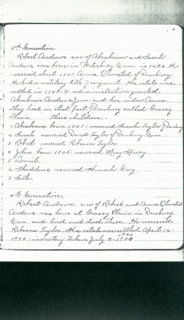 5th Generation
Robert Andrews son of Abraham and Sarah
Andrews was born in Waterbury Conn. in 1693. He
married about 1727 Anna Olmsted of Danbury.
He held a military title, Sergeant. His estate was
settled in 1794. administration granted
Abraham Andrews Jun. and his widow Anna.
They lived in that part Danbury called Grassy
Plain. Their children:
1 Abraham born 1721. married Sarah Taylor Danbury
2 Sarah married David Taylor of Danbury Conn.
3 Robert married Rebecca Taylor
4 John born married Mary Starr
5 Daniel
6 Thaddeus married Hannah
7 Seth.
6 Generation.
Robert Andrews, son of Robert and Anna Olmsted
Andrews was born at Grassy Plain in Danbury
Conn. and lived and died there. He married
Rebecca Taylor. His estate was April 12
inventory taken July 3.